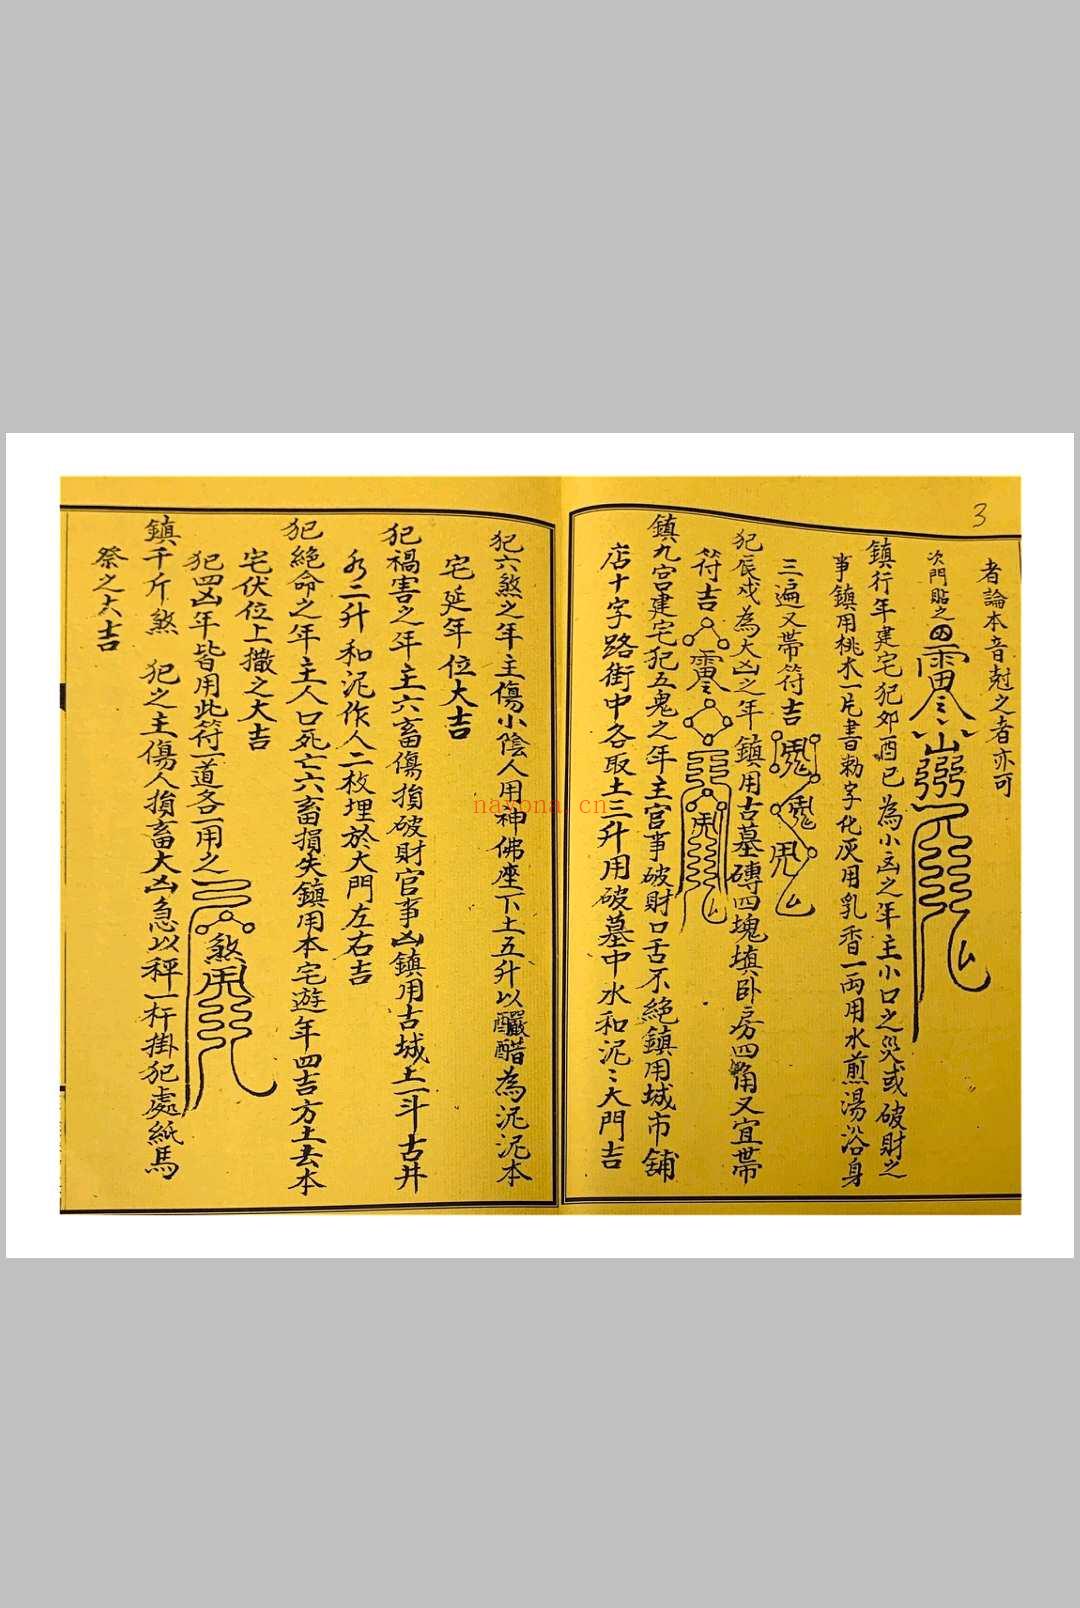 3
者論本音尅之者亦可
次門貼之
鎮行年建宅犯夘酉已為小凶之年主小口之災或破財之
事鎮用桃木一片書勅字化灰用乳香一両用水煎湯浴身
三遍又帶符吉
犯辰戍為大凶之年鎮用古墓磚四塊填卧房四角又宜帶
符吉
鎮九宮建宅犯五鬼之年主官事破財口舌不絕鎮用城市舖
店十字路街中各取土三升用破墓中水和泥〻大門吉
犯六煞之年主傷小陰人用神佛座下土五升以釅醋為泥泥本
宅延年位大吉
犯禍害之年主六畜傷損破財官事凶鎮用古城土一斗古井
水二升和泥作人二枚埋於大門左右吉
犯絕命之年主人口死亡六畜損失鎮用本宅遊年四吉方土去本
宅伏位上撒之大吉
犯四凶年皆用此符一道各一用之
煞
鎮千斤煞 犯之主傷人損畜大凶急以秤一杆掛犯處紙馬
祭之大吉
nayona.cn